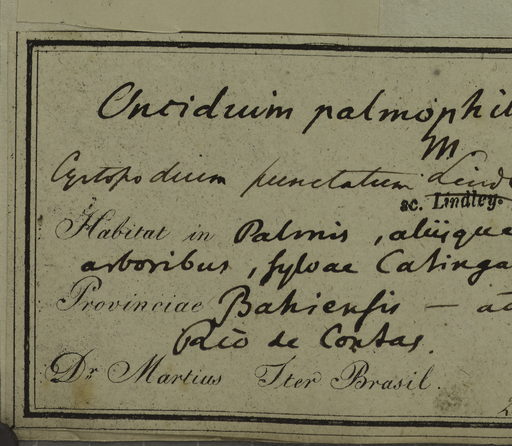 Oncidium palmophil
M
Cyrtopodium punctatum Lindl
sc. Lindley.
Habitat in Palmis, aliisque
arboribus, sylvae Catinga
Provinciae Bahiensis — ad
Rio de Contas.
Dr Martius Iter Brasil.
2